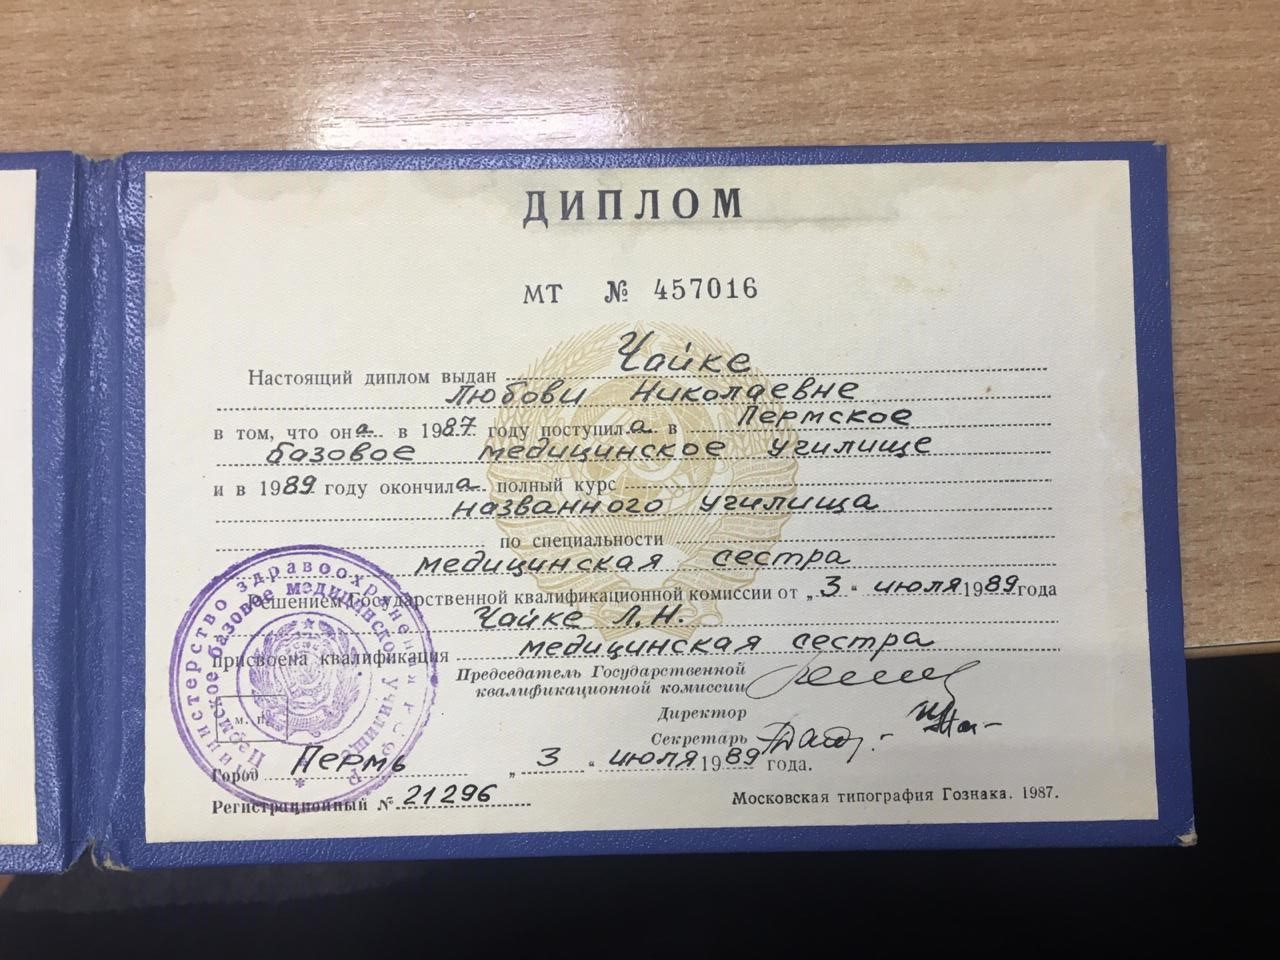 ДИПЛОМ
МТ № 457016
Настоящий диплом выдан Чайке
Любови Николаевне
в том, что она в 1987 году поступила в Пермское
базовое медицинское училище
и в 1989 году окончила полный курс
названного училища
по специальности
медицинская сестра
Решением Государственной квалификационной комиссии от „3“ июля 1989 года
Чайке Л.Н.
присвоена квалификация медицинская сестра
Председатель Государственной
квалификационной комиссии
Директор
Секретарь
Город Пермь „3“ июля 1989 года.
Регистрационный № 21296
Московская типография Гознака. 1987.
м. п.
Министерство здравоохранения РСФСР
Пермское базовое медицинское училище